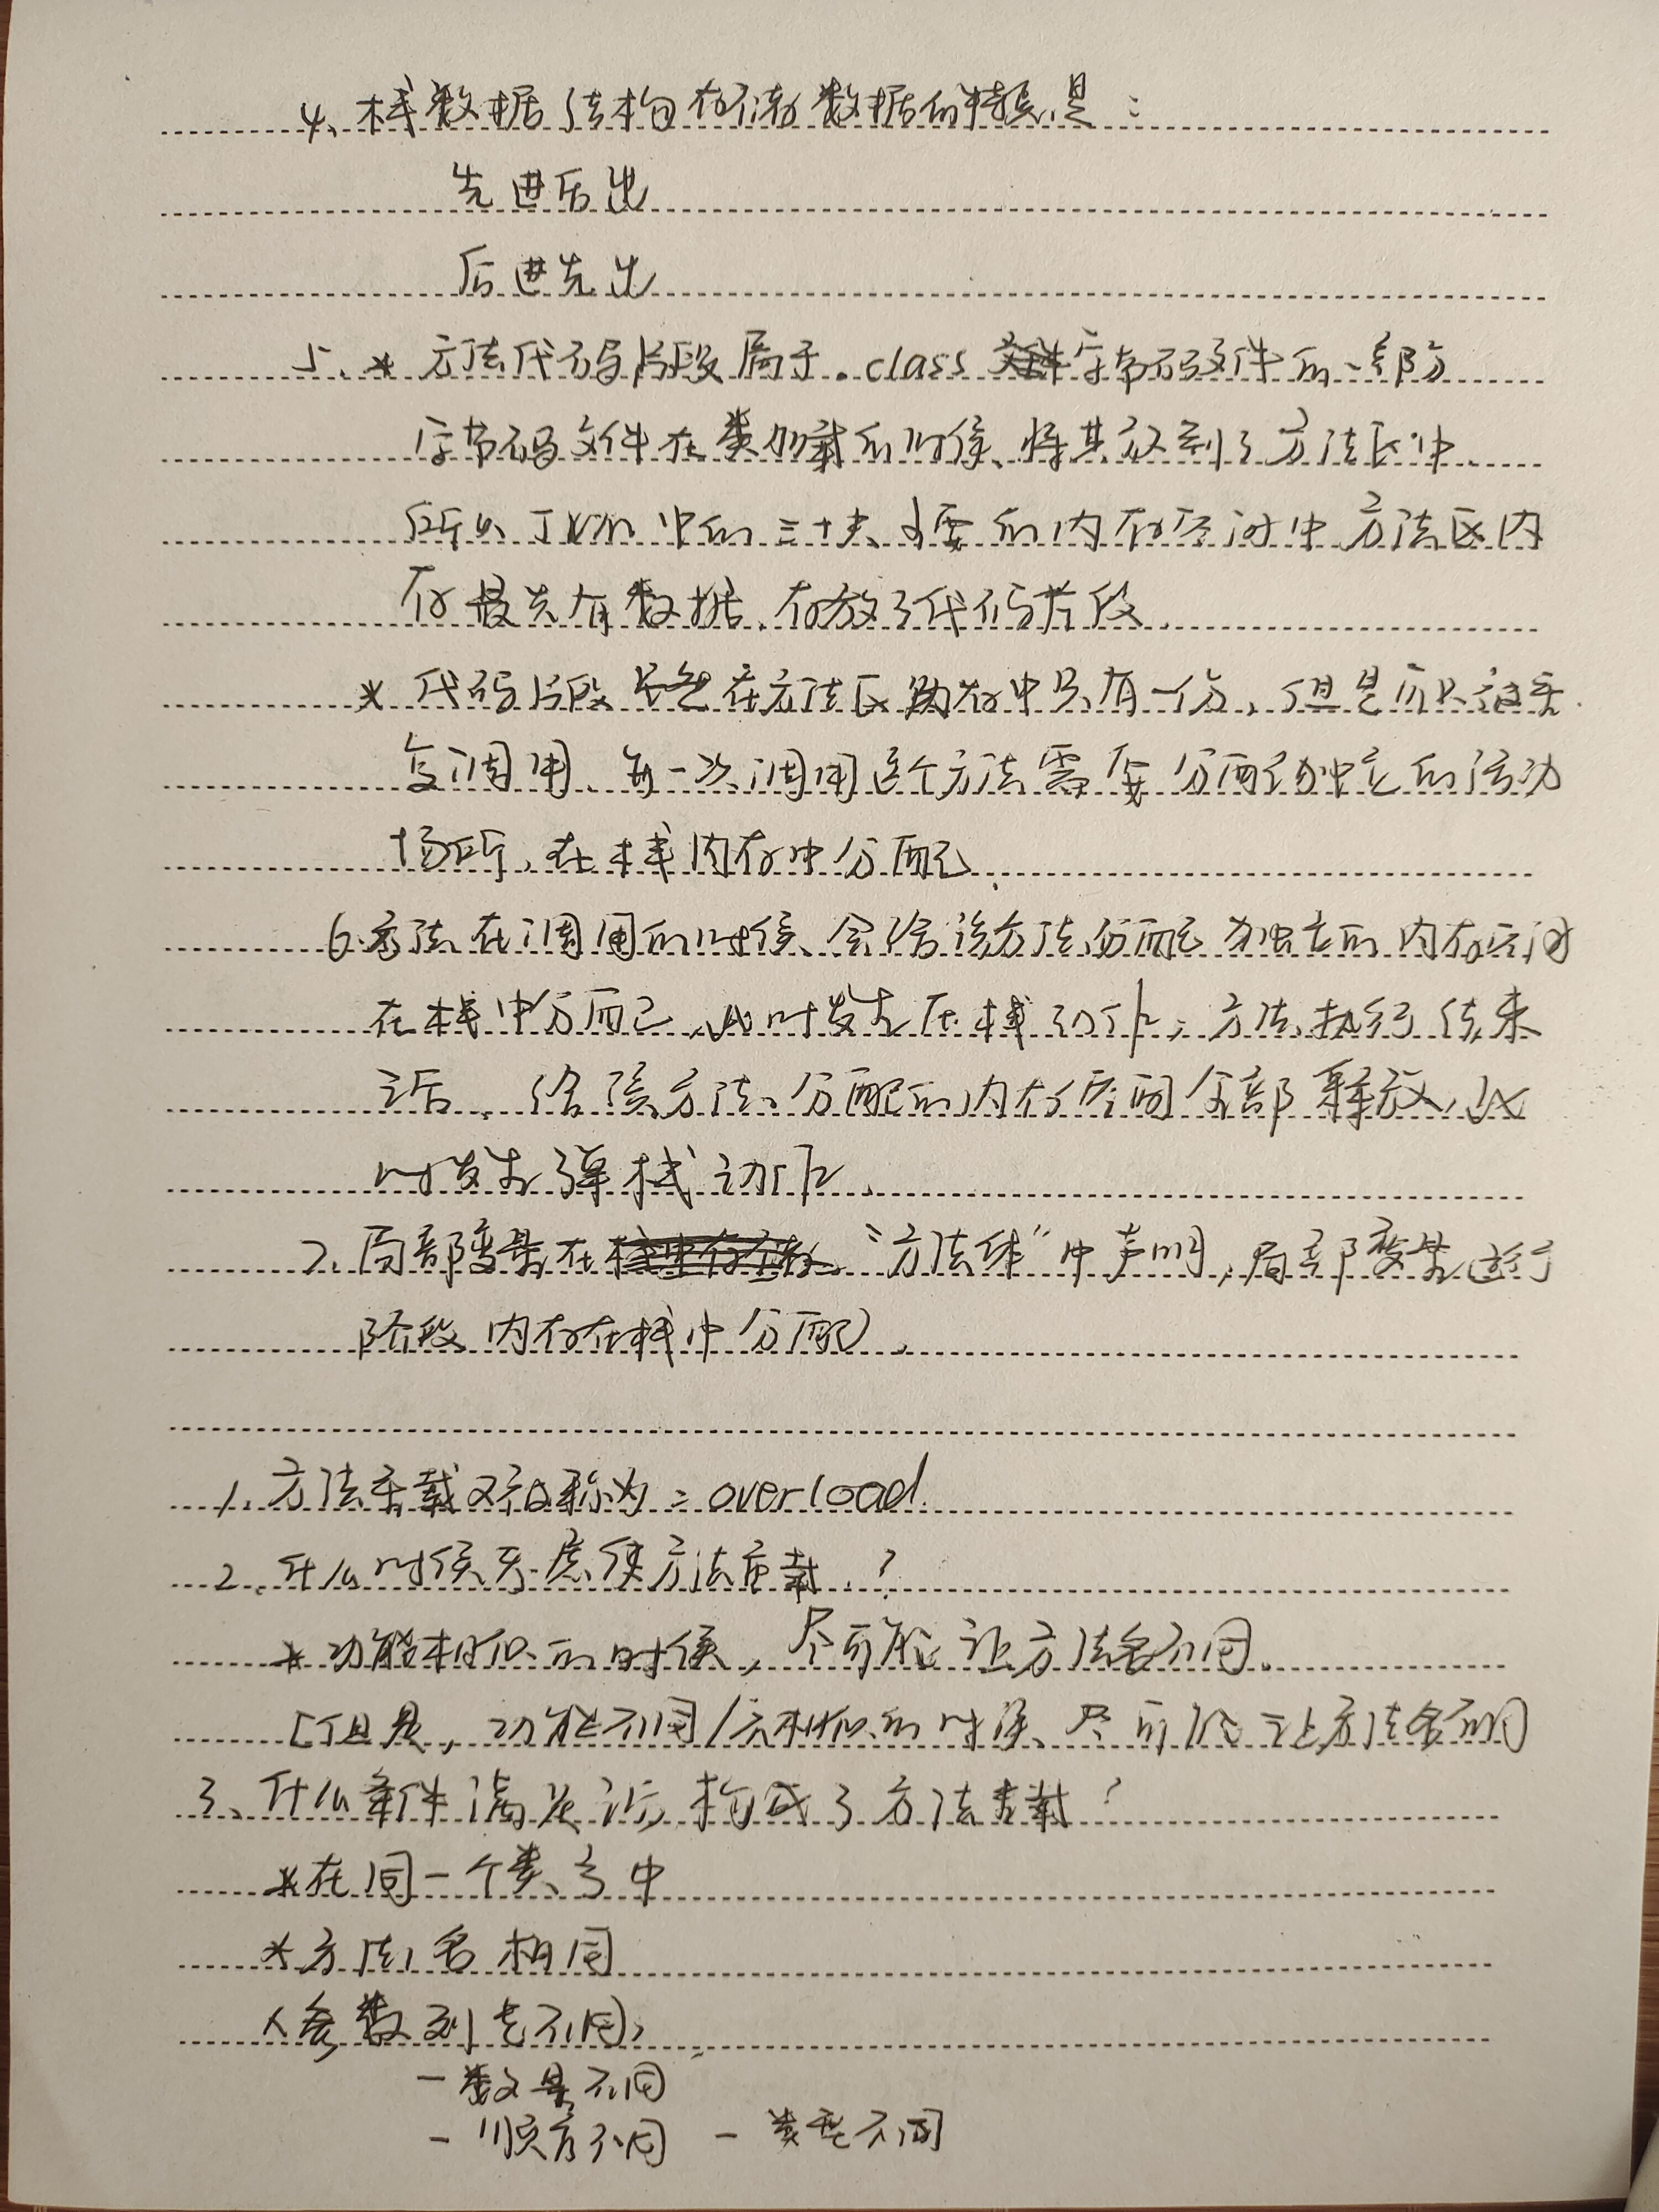 4、栈数据结构存储数据的特点是：
先进后出
后进先出
5、* 方法代码片段属于.class 字节码文件的一部分
字节码文件在类加载的时候、将其放到了方法区中、
所以JVM中的三大主要的内存空间中方法区内
存最先有数据、存放了代码片段
* 代码片段虽然在方法区内存中只有一份、但是可以被重
复调用、每一次调用这个方法需要分配独立的活动
场所、在栈内存中分配、
6、方法在调用的时候、会给该方法分配独立的内存空间
在栈中分配、此时发生压栈动作、方法执行结束
之后、给该方法分配的内存空间全部释放、此
时发生弹栈动作、
7、局部变量在"方法体"中声明，局部变量运行
阶段内存在栈中分配、
1、方法重载又被称为：overload
2、什么时候考虑使方法重载？
* 功能相似的时候，尽可能让方法名不同、
[但是，功能不同/不相似的时候、尽可能让方法名不同
3、什么条件满足之后构成了方法重载？
* 在同一个类当中
* 方法名相同
* 参数列表不同：
- 数量不同
- 顺序不同 - 类型不同